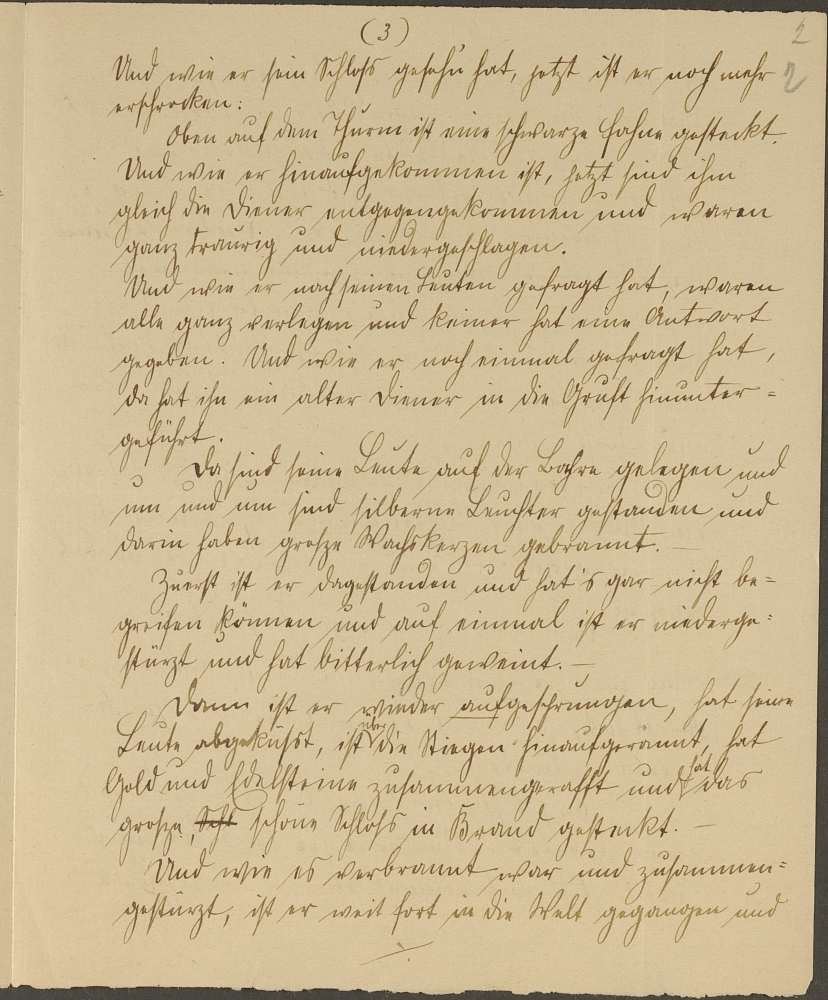 (3)
2
2
Und wie er sein Schloß geseh'n hat, jetzt ist er noch mehr
erschrocken:
Oben auf dem Thurm ist eine schwarze Fahne gesteckt.
Und wie er hinaufgekommen ist, jetzt sind ihm
gleich die Diener entgegengekommen und waren
ganz traurig und niedergeschlagen.
Und wie er nach seinen Leuten gefragt hat, waren
alle ganz verlegen und keiner hat eine Antwort
gegeben. Und wie er noch einmal gefragt hat,
da hat ihn ein alter Diener in die Gruft hinunter=
geführt.
Da sind seine Leute auf der Bahre gelegen und
um und um sind silberne Leuchter gestanden und
darin haben große Wachskerzen gebrannt. —
Zuerst ist er dagestanden und hat's gar nicht be=
greifen können und auf einmal ist er niederge=
stürzt und hat bitterlich geweint. —
Dann ist er wieder aufgesprungen, hat seine
Leute abgeküsst, ist über die Stiegen hinaufgerannt, hat
Gold und Edelsteine zusammengerafft und hat das
große, Schl schöne Schloß in Brand gesteckt. —
Und wie es verbrannt war und zusammen=
gestürzt, ist er weit fort in die Welt gegangen und